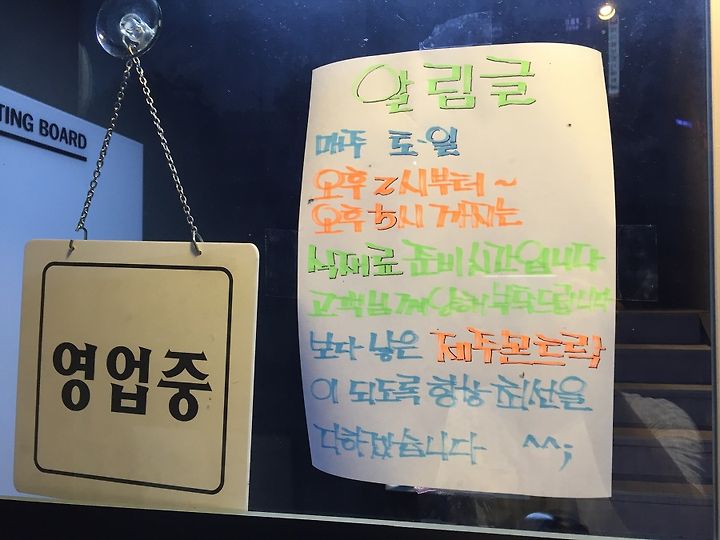 TING BOARD
영업중
알림글
매주 토·일
오후 2시부터 ~
오후 5시 까지는
식재료 준비시간입니다
고객님께 양해 부탁드립니다
보다 낳은 제주몬트락
이 되도록 항상 최선을
다하겠습니다 ^^;